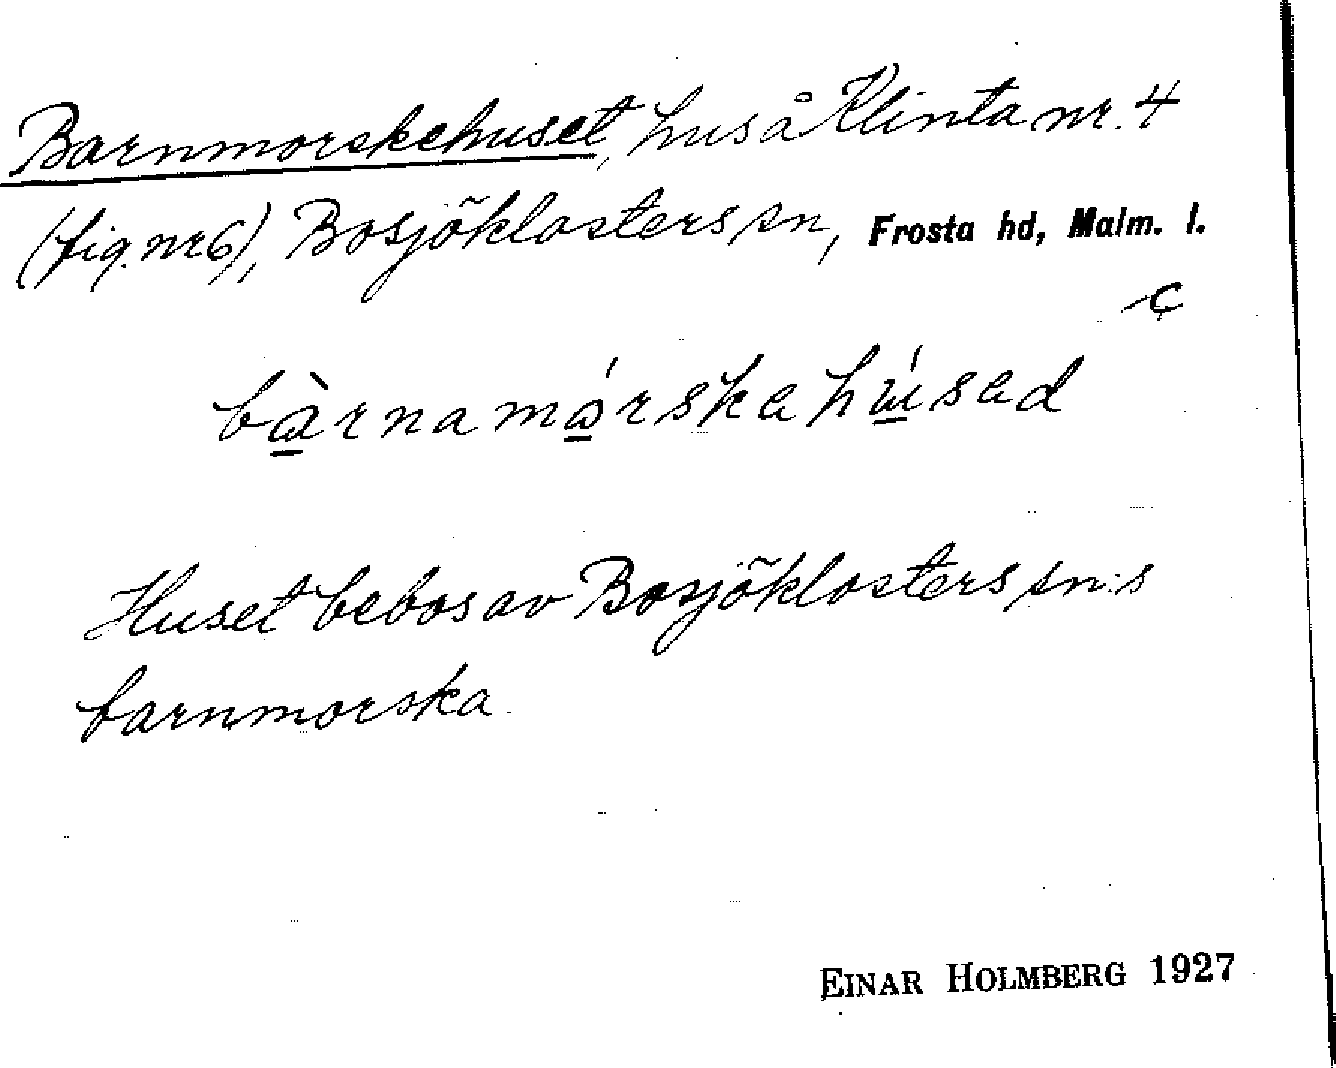 Barnmorskehuset, hus å Klinta nr. 4
(fig. nr 6), Bosjöklosters sn, Frosta hd, Malm. l.
c
bàrnamórskahúsad
Huset bebos av Bosjöklosters sn:s
barnmorska
EINAR HOLMBERG 1927